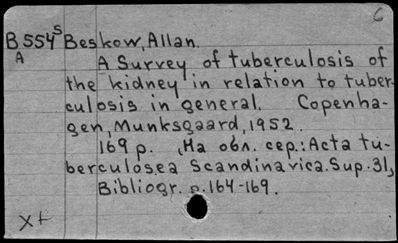 6
B554s Beskow, Allan.
A A Survey of tuberculosis of
the kidney in relation to tuber-
culosis in general. Copenha-
gen, Munksgaard, 1952.
169 p. , На обл. сер.: Acta tu-
berculosea Scandinavica. Sup. 31,
Bibliogr. p. 164-169.
x+